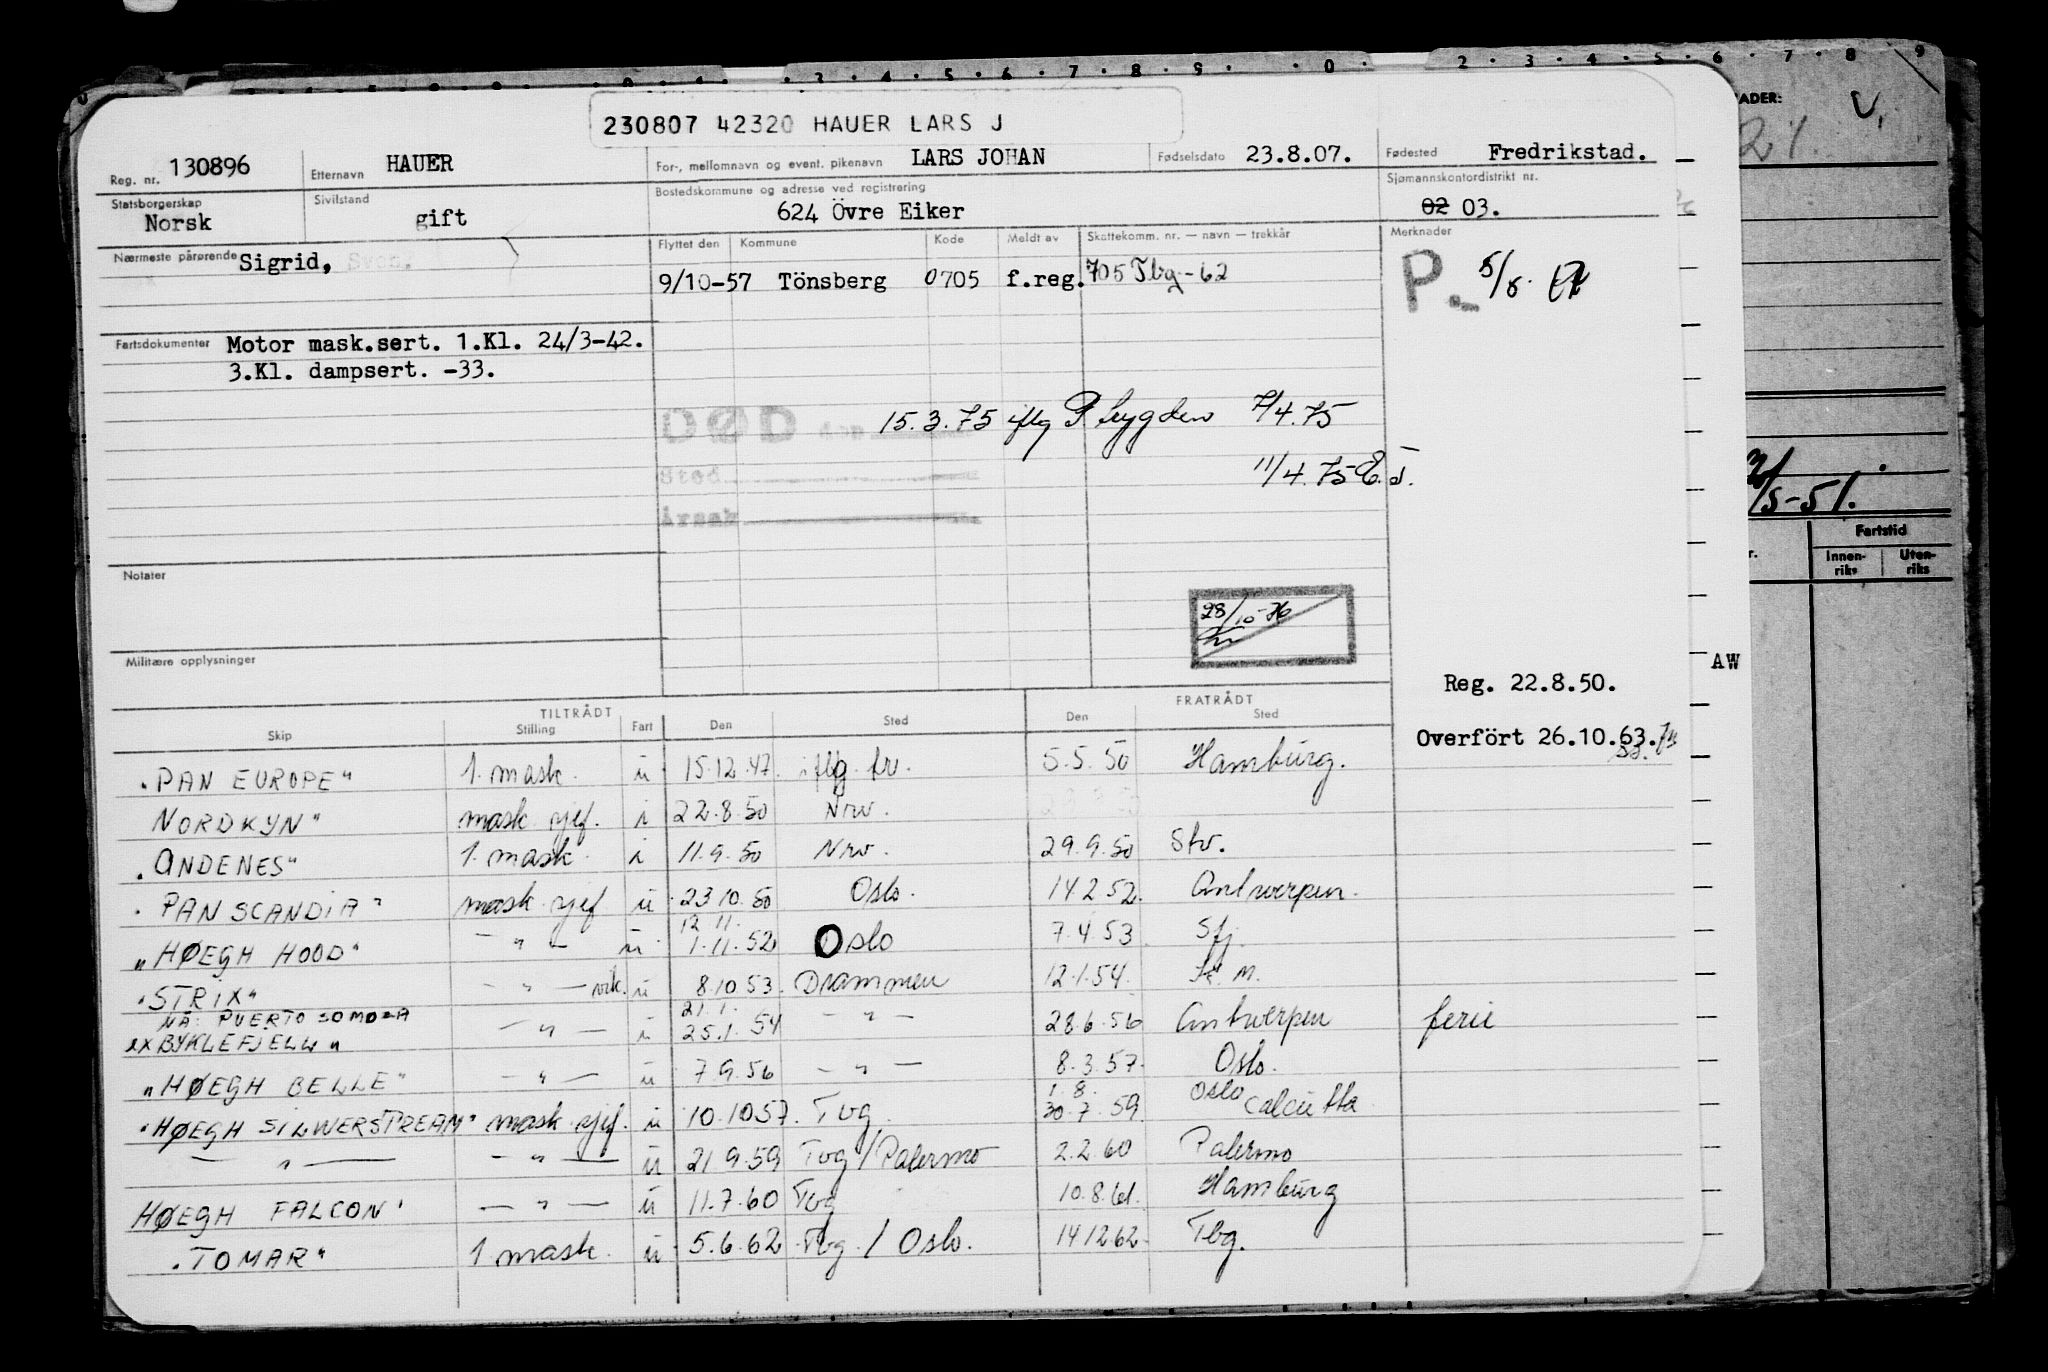 230807 42320 HAUER LARS J
Reg. nr. 130896 Etternavn HAUER For-, mellomnavn og event. pikenavn LARS JOHAN Fødselsdato 23.8.07. Fødested Fredrikstad.
Statsborgerskap Norsk Sivilstand gift Bostedskommune og adresse ved registrering 624 Övre Eiker Sjømannskontordistrikt nr. 02 03.
Nærmeste pårørende Sigrid,
Flyttet den Kommune Kode Meldt av Skattekomm. nr. — navn — trekkår Merknader
9/10-57 Tönsberg 0705 f.reg. 705 Tbg-62
P. 5/8.
Fartsdokumenter Motor mask.sert. 1.Kl. 24/3-42.
3.Kl. dampsert. -33.
DØD den 15.3.75 iflg P trygden 7/4.75
Sted 11/4.75
Årsak
Notater
28/10-76
Militære opplysninger
AW
Reg. 22.8.50.
Overfört 26.10.63.
TILTRÅDT FRATRÅDT
Skip Stilling Fart Den Sted Den Sted
"PAN EUROPE" 1. mask. u 15.12.47. iflg fr. 5.5.50 Hamburg.
NORDKYN" mask sjef. i 22.8.50 Nrv.
"ANDENES" 1. mask. i 11.9.50 Nrv. 29.9.50 Stv.
"PAN SCANDIA" mask sjef u 23.10.50 Oslo. 14.2.52. Antwerpen.
12.11.
"HØEGH HOOD" — " — u 1.11.52 Oslo 7.4.53 Sfj.
"STRIX" — " — vik. u 8.10.53. Drammen 12.1.54.
NÅ: PUERTO SOMOZA 21.1.
ex BYKLEFJELL" — " — u 25.1.54 — " — 28.6.56 Antwerpen ferie
"HØEGH BELLE" — " — u 7.9.56 — " — 8.3.57. Oslo.
1.8. Oslo
"HØEGH SILWERSTREAM" mask sjef. u 10.10.57. Tbg. 30.7.59. Calcutta
— " — — " — u 21.9.59 Tbg/Palermo 2.2.60 Palermo
HØEGH FALCON" — " — u 11.7.60 Tbg 10.8.61. Hamburg
"TOMAR" 1 mask. u 5.6.62 Tbg / Oslo. 14.12.62. Tbg.
21.
/5-51.
Fartstid
Innenriks Utenriks